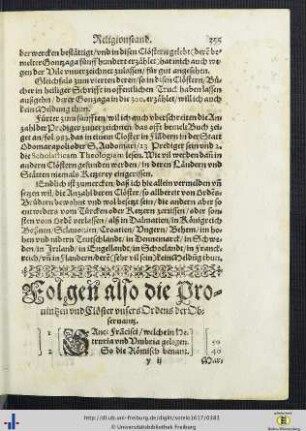 Religionstand.
der wercken bestättigt/vnd in disen Clöstern gelebt (deren be=
melter Gonzaga fünff hundert erzählet) hat mich auch we=
gen der Vile vnuerzeichnet zulassen/für gut angesehen.
Gleichfals zum vierten deren/so in disen Clöstern/Bü=
cher in heiliger Schrifft in offentlichen Truck haben lassen
außgehn/derer Gonzaga in die 300. erzählet/will ich auch
kein Meldung thun.
Fürter zum fünfften/will ich auch vberschreiten die An=
zahl der Prediger zuuerzeichnen/das offt bemelt Buch zei=
get an fol. 993. das in einem Closter in Flandern in der Statt
Odomaropolis oder S. Audomari/23. Prediger sein vnd 2.
die Scholasticam Theologiam lesen. Wie vil werden dañ in
andern Clöstern gefunden werden/in denen Ländern vnd
Stätten niemals Ketzerey eingerissen.
Endlich ist zumercken/daß ich hie allein vermelden vñ
setzen wil/die Anzahl deren Clöster/so allbereit von Ordens
Brüdern bewohnt vnd wol besetzt sein/die andern aber so
entweders vom Türcken oder Ketzern zerrissen/oder son=
sten vom Ordẽ verlassen/als in Dalmatien/im Königreich
Boßnen/Sclauonien/Croatien/Vngern/Behem/im ho=
hen vnd nidern Teutschlande/in Dennemarck/in Schwe=
den/in Irrland/in Engellandt/in Schottlande/in Franck=
reich/vñ in Flandern/derẽ sehr vil sein/kein Meldug thun.
Folgen also die Pro=
uintzen vnd Clöster vnsers Ordens der Ob=
seruantz.
1 Sanc: Frãcisci/welche in He=
truria vnd Vmbria gelegen. 50
2 So die Römisch benant. 40
y ij
Mar:
http://dl.ub.uni-freiburg.de/diglit/sennis1617/0183
© Universitätsbibliothek Freiburg